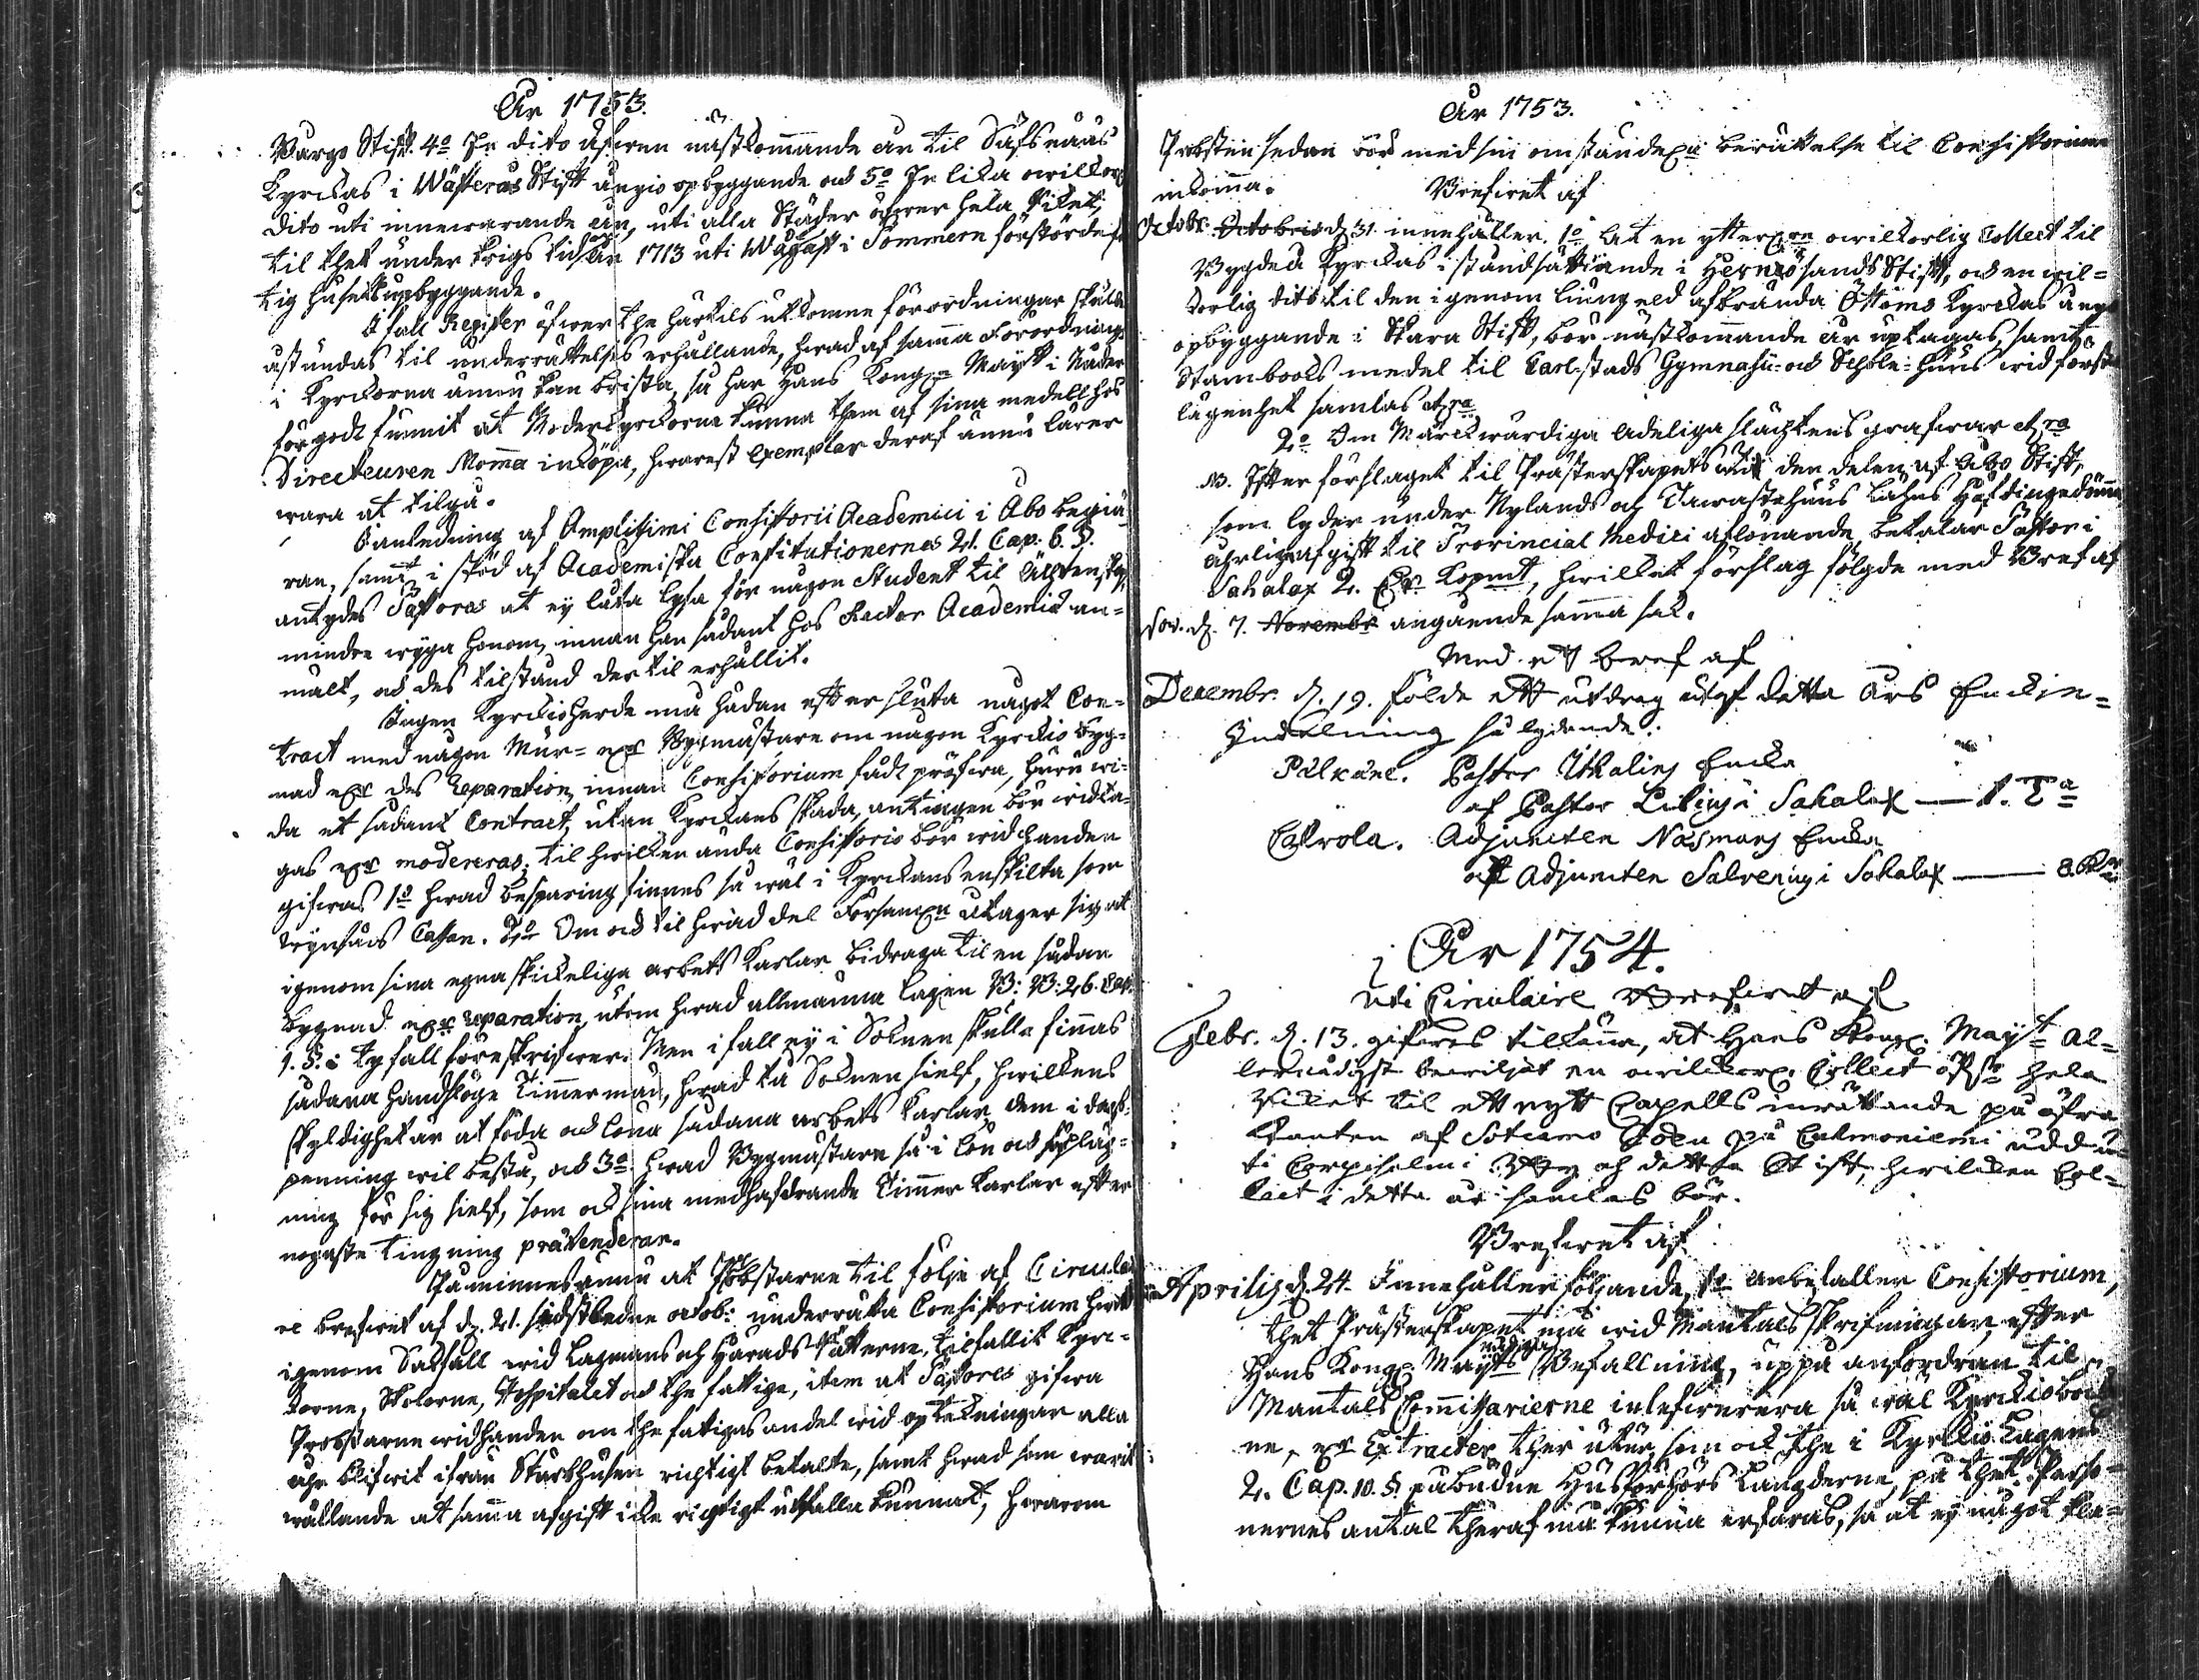 År 1753.
Borgo Stift. 4o En dito öfwer nästkommande år til Säfsnääs
Kyrckas i Wästerås Stift ungio opbyggande och 5o En lika owilkor
dito uti innewarande år, uti alla Städer öfwer hela Riket,
til thet under krigs tiden 1713 uti Wågast i Sommern förstörde
tig husets upbyggande.
Ifall Register öfwer the härtils utkomne förordningar skulle
åstundas til underrättelses erhållande, hwad af samma Förordningar
i Kyrckorna ännu kan brista, så har Hans Kongl. Maytt i Nåder
för godt funnit at Moderkyrckorna kunna them af sina medell hos
Directeuren Momma inköpa, hwarest Exemplar deraf ännu lärer
wara at tilgå.
I anledning af Amplissimi Consistorii Academici i Åbo begiä-
ran, samt i stöd af Academiska Constitutionernes 21. Cap. 6. §.
antydes Pastores at ey låta lysa för någon Student til Ächtenskap,
mindre wiga honom, innan han sådant hos Rector Academiæ an-
mält, och des tilstånd der til erhållit.
Ingen Kyrckioherde må hädan efter sluta något Con-
tract med någon Mur- eller Bygmästare om någon Kyrckio byg-
nad eller des Reparation, innan Consistorium fådt pröfwa, huru wi-
da et sådant Contract, utan Kyrckans skada, antingen bör widta-
gas eller modereras; til hwilken ända Consistorio bör wid handen
gifwas 1o hwad besparing finnes så wäl i Kyrckans enskilta som
Cassan. 2o Om och til hwad del Församln åtager sig at
igenom sina egna skickeliga arbets Karlar bidraga til en sådan
bygnad eller reparation, utom hwad allmänna Lagen B: B: 26. Cap.
1. §. i ty fall föreskrifwer. Men ifall ey i Soknen skulle finnas
sådana handslöge Timmermän, hwad tå Soknen sielf, hwilkens
skyldighet är at föda och löna sådana arbets Karlar, dem i dags-
penning wil bestå, och 3o. hwad Bygmästare så i lön och
ning för sig sielf, som och sina medhafwande Timmer Karlar efter
nogaste tingning prætenderar.
Påminnes ännu at Probstarne til följe af Circulai
re brefwet af d. 21. sidstledne octob: underrätta Consistorium hwad
igenom Sakfall wid Lagmans och Härads Rätterne, tilfallit Kyrc-
korne, Skolorne, Hospitalet och the fattige, item at Pastores gifwa
Probstarne widhanden om the fattigas andel wid opteckningar alla
åhr blifwit ifrån Sterbhusen richtigt betalte, samt hwad som warit
wållande at samma afgift icke richtigt utfalla kunnat, hwarom
År 1753.
Probsten sedan bör med sin omständel. berättelse til Consistorium
inkomma.
Brefwet af
Octobr. d. 31. innehåller. 1o At en ytterligare owilkorlig Collect til
Bygdeå Kyrckas iståndsättiande i Hernösands Stift, och en wil-
korlig dito til den igenom liungeld afbrända Öttums Kyrckas ung
opbyggande i Skara Stift, bör nästkommande år uptagas, samt
Stambooks medel til Carl-stads Gymnasii- och Schole-huus wid första
lägenhet samlas etc.
2o Om Märckwärdiga Adeliga slächtens grafwar etc.
NB. Efter förslaget til Prästerskapets uti den delen af Åbo Stift,
som lyder under Nylands och Tawastehuus Lähns Höfdingedömme
åhrliga afgift til Provincial Medici aflönande, betalar Pastor i
Sahalax 2. Dr Kopmt, hwilket förslag följde med Bref af
Nov. d. 7. angående samma sak.
Med ett bref af
Decembr. d. 19. földe ett utdrag utaf detta års Enckie-
Indelning så lydande:
Pälkäne. Pastor Ithalins Encka
af Pastor Libins i Sahalax — 1. Ta
Eckrola. Adjuncten Näsmans Encka
af Adjuncten Salvenius i Sahalax — 8. Kr
År 1754.
Uti Circulaire Brefwet af
Febr. d. 13. gifwes tillkänna, at Hans Kongl. Mayt al-
lernådigst bewiljat en owilkorl. Collect öfwer hela
Riket til ett nytt Capells inrättande på öfra
kanten af Sotkamo Sokn på Cuhmoniemi udd u
ti Corpiselmi och detta Stift, hwilken Col-
lect i detta år samlas bör.
Brefwet af
Aprilis d. 24. Innehåller följande, 1o anbefaller Consistorium,
thet Prästerskapet må wid Mantals skrifningar, efter
Hans Kongl. Mayts nådiga Befallning, uppå anfordran til
Mantals Commissarierne inlefwerera så wäl Kyrckioböcker
ne, eller Extracter ther utur, som ock the i Kyrckio Lagens
2. Cap. 10. §. påbudne Husförhörs Längderne, på thet Perso-
nernes antal theraf må kunna erfaras, så at ey något kla-